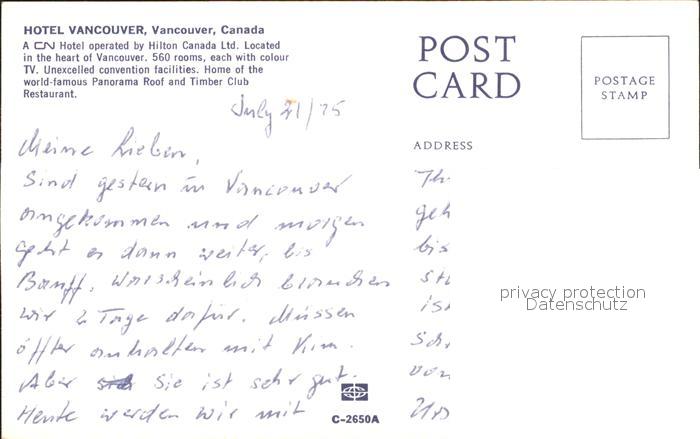 HOTEL VANCOUVER, Vancouver, Canada
A CN Hotel operated by Hilton Canada Ltd. Located
in the heart of Vancouver. 560 rooms, each with colour
TV. Unexcelled convention facilities. Home of the
world-famous Panorama Roof and Timber Club
Restaurant.
July 21/75
Meine Lieben,
Sind gestern in Vancouver
angekommen und morgen
geht es dann weiter, bis
Banff. Warscheinlich brauchen
wir 2 Tage dafür. Müssen
öffter anhalten mit Kim.
Aber Sie ist sehr gut.
Heute werden wir mit
C-2650A
POST
CARD
POSTAGE
STAMP
ADDRESS
geh
bis
ist
von
privacy protection
Datenschutz